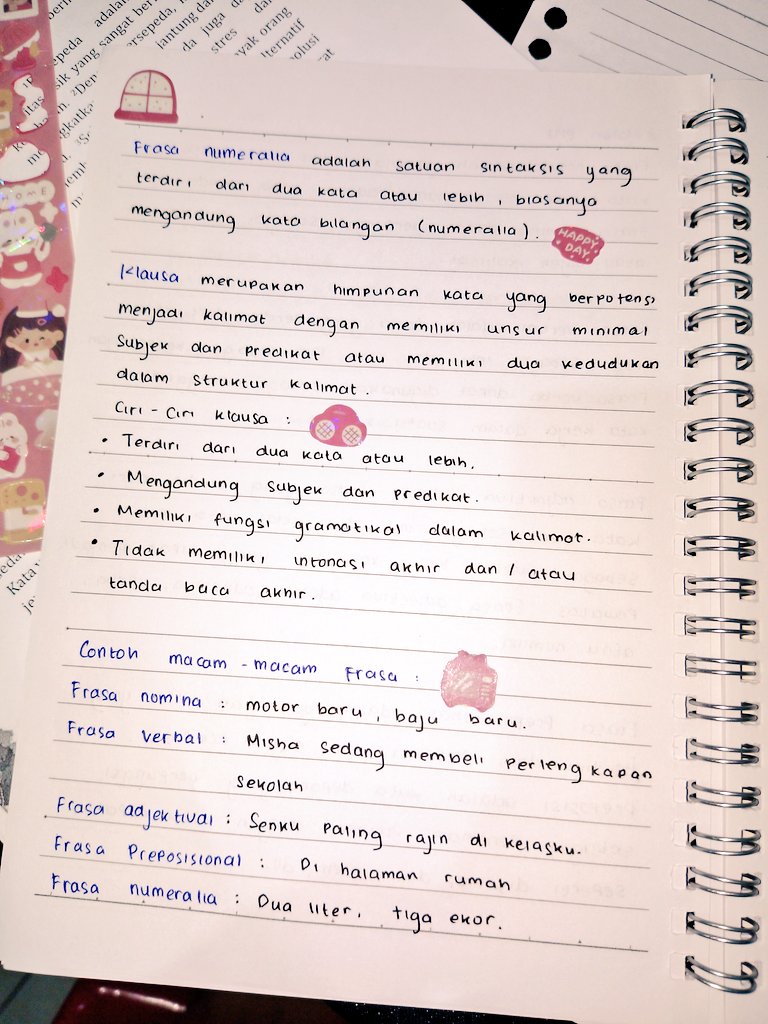 Frasa numeralia adalah satuan sintaksis yang
terdiri dari dua kata atau lebih, biasanya
mengandung kata bilangan (numeralia).
HAPPY
DAY
Klausa merupakan himpunan kata yang berpotensi
menjadi kalimat dengan memiliki unsur minimal
Subjek dan predikat atau memiliki dua kedudukan
dalam struktur kalimat.
Ciri - Ciri klausa :
• Terdiri dari dua kata atau lebih.
• Mengandung subjek dan predikat.
• Memiliki fungsi gramatikal dalam kalimat.
• Tidak memiliki intonasi akhir dan / atau
tanda baca akhir.
Contoh macam - macam Frasa :
Frasa nomina : motor baru, baju baru.
Frasa verbal : Misha sedang membeli Perlengkapan
Sekolah
Frasa adjektival : Senku paling rajin di kelasku.
Frasa Preposisional : Di halaman rumah
Frasa numeralia : Dua liter, tiga ekor.
HOME